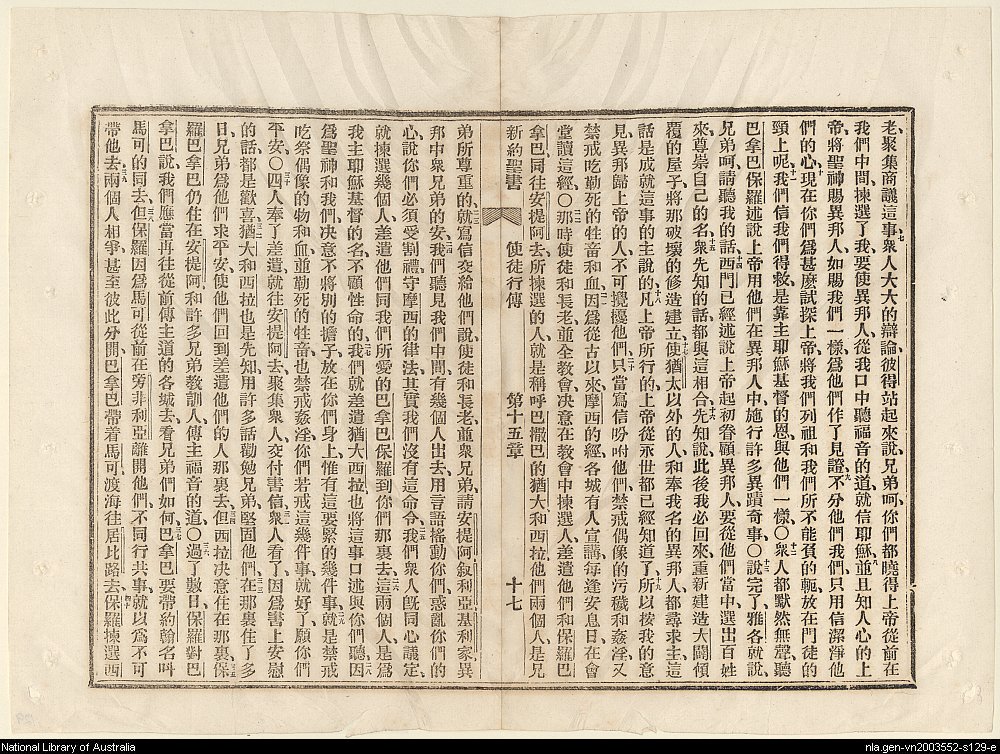 老聚集商議這事、七衆人大大的辯論、彼得站起來說、兄弟呵、你們都曉得上帝從前在
我們中間、揀選了我、要使異邦人、從我口中聽福音的道、就信耶穌、八並且知人心的上
帝、將聖神賜異邦人、如賜我們一樣、爲他們作了見證、九不分他們我們、只用信潔淨他
們的心、十現在你們爲甚麼試探上帝、將我們列祖和我們所不能負的軛、放在門徒的
頸上呢、十一我們信我們得救、是靠主耶穌基督的恩、與他們一樣、〇十二衆人都默然無聲、聽
巴拿巴保羅述說上帝用他們在異邦人中施行許多異蹟奇事、〇十三說完了、雅各就說、
兄弟呵、請聽我的話、十四西門已經述說上帝起初眷顧異邦人、要從他們當中、選出百姓
來、尊崇自己的名、十五衆先知的話、都與這相合、十六先知說、此後我必回來、重新建造大闢傾
覆的屋子、將那破壞的修造建立、十七使猶太以外的人、和奉我名的異邦人、都尋求主、這
話是成就這事的主說的、十八凡上帝所行的、上帝從永世都已經知道了、十九所以按我的意
見、異邦歸上帝的人、不可攪擾他們、二十只當寫信吩咐他們、禁戒偶像的污穢和姦淫、又
禁戒吃勒死的牲畜和血、二一因爲從古以來、摩西的經、各城有人宣講、每逢安息日、在會
堂讀這經、〇二二那時使徒和長老、並全教會、決意在教會中揀選人、差遣他們和保羅巴
拿巴、同往安提阿去、所揀選的人、就是稱呼巴撒巴的猶大、和西拉、他們兩個人是兄
新約聖書 使徒行傳 第十五章 十七
弟所尊重的、二三就寫信交給他們、說使徒和長老、並衆兄弟、請安提阿叙利亞基利家異
邦中衆兄弟的安、二四我們聽見我們中間有幾個人出去、用言語搖動你們、惑亂你們的
心、說你們必須受割禮、守摩西的律法、其實我們沒有這命令、二五我們衆人旣同心議定、
就揀選幾個人、差遣他們同我們所愛的巴拿巴保羅、到你們那裏去、二六這兩個人是爲
我主耶穌基督的名、不顧性命的、二七我們就差遣猶大西拉、也將這事口述與你們聽、二八因
爲聖神和我們、決意不將別的擔子、放在你們身上、惟有這要緊的幾件事、二九就是禁戒
吃祭偶像的物、和血、並勒死的牲畜、也禁戒姦淫、你們若戒這幾件事就好了、願你們
平安、〇三十四人奉了差遣、就往安提阿去、聚集衆人、交付書信、三一衆人看了、因爲書上安慰
的話、都是歡喜、三二猶大和西拉、也是先知、用許多話勸勉兄弟、堅固他們、三三在那裏住了多
日、兄弟爲他們求平安、使他們回到差遣他們的人那裏去、三四但西拉決意住在那裏、三五保
羅巴拿巴、仍住在安提阿、和許多兄弟教訓人、傳主福音的道、〇三六過了數日、保羅對巴
拿巴說、我們應當再往從前傳主道的各城去、看兄弟們如何、三七巴拿巴要帶約翰名叫
馬可的同去、三八但保羅因爲馬可從前在旁非利亞離開他們、不同行共事、就以爲不可
帶他去、三九兩個人相爭、甚至彼此分開、巴拿巴帶着馬可渡海、往居比路去、四十保羅揀選西
National Library of Australia
nla.gen-vn2003552-s129-e